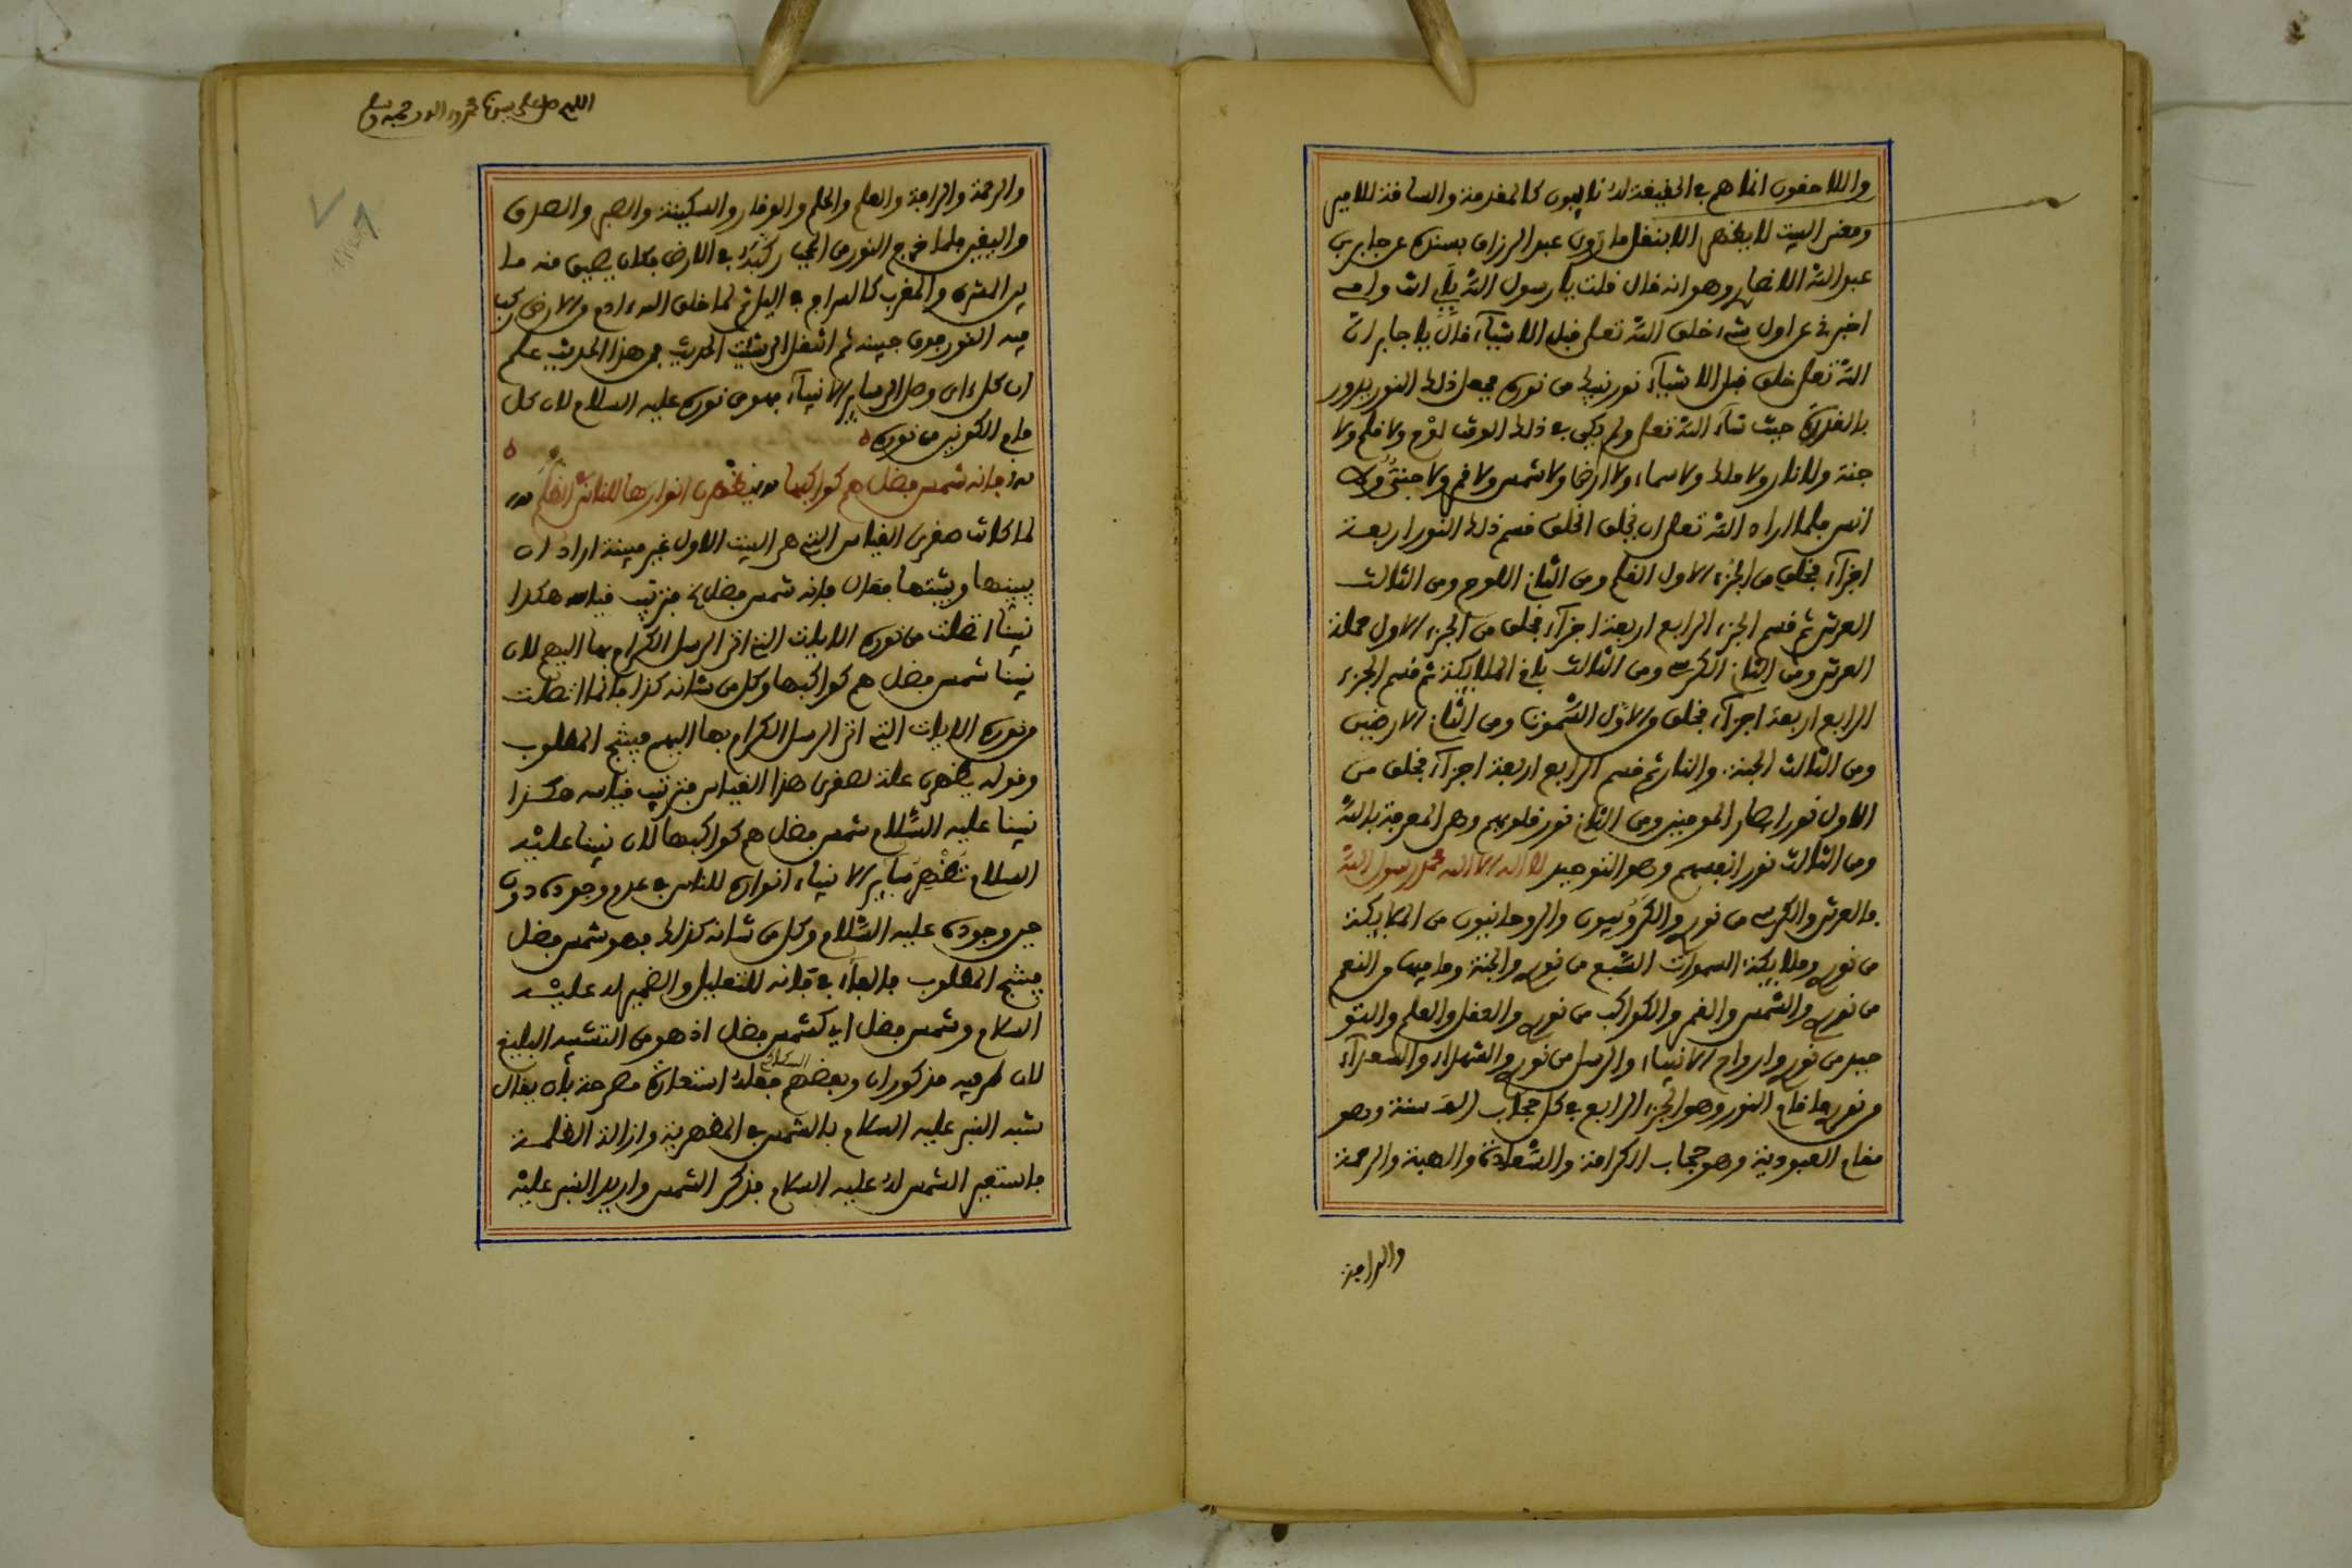 واللاحقون انما هم في الحقيقة له نايبون كالمقدمة والساقة للامير
ومعنى البيت لا يظهر الا بنقل ما روى عبد الرزاق بسنده عن جابر بن
عبد الله الانصاري وهو انه قال قلت يا رسول الله بابي انت وامي
اخبرني عن اول شيء خلق الله تعلى قبل الاشياء قال يا جابر ان
الله تعلى خلق قبل الاشياء نور نبيك من نوره فجعل ذلك النور يدور
بالقدرة حيث شاء الله تعلى ولم يكن في ذلك الوقت لوح ولا قلم ولا
جنة ولا نار ولا ملك ولا سماء ولا ارض ولا شمس ولا قمر ولا جني ولا
انس فلما اراد الله تعلى ان يخلق الخلق قسم ذلك النور اربعة
اجزآء فخلق من الجزء الاول القلم ومن الثاني اللوح ومن الثالث
العرش ثم قسم الجزء الرابع اربعة اجزآء فخلق من الجزء الاول حملة
العرش ومن الثاني الكرسي ومن الثالث باقي الملايكة ثم قسم الجزء
الرابع اربعة اجزآء فخلق من الاول السموت ومن الثاني الارضين
ومن الثالث الجنة والنار ثم قسم الرابع اربعة اجزآء فخلق من
الاول نور ابصار المومنين ومن الثاني نور قلوبهم وهي المعرفة بالله
ومن الثالث نور انفسهم وهو التوحيد لا اله الا الله محمد رسول الله
فالعرش والكرسي من نوري والكروبيون والروحانيون من الملايكة
من نوري وملايكة السموات السبع من نوري والجنة وما فيها من النعم
من نوري والشمس والقمر والكواكب من نوري والعقل والعلم والتو
فيق من نوري وارواح الانبياء والرسل من نوري والشهداء والسعداء
من نوري ما قام النور وهو الجزء الرابع في كل حجاب الف سنة وهو
مقام العبودية وهو حجاب الكرامة والسعادة والهيبة والرحمة
والرافة
اللهم صل على سيدنا محمد وآله وصحبه وسلم
والرحمة والرافة والعلم والحلم والوقار والسكينة والصبر والصدق
واليقين فلما خرج النور من الحجاب ركبه في الارض فكان يضيء منه ما
بين المشرق والمغرب كالسراج في الليل ثم لما خلق الله ادم من الارض ركب
فيه النور فوق جبينه ثم انتقل الى شيث الحديث فمن هذا الحديث علم
ان كل ءاي وصل الى ساير الانبياء فهو من نوره عليه السلام لان كل
ما في الكونين من نوره
فانه شمس فضل هم كواكبها يظهرن انوارها للناس في الظلم
لما كانت صغرى القياس التي هي البيت الاول غير مبينة اراد ان
يبينها ويثبتها فقال فانه شمس فضل الخ فترتيب قياسه هكذا
نبينا اتصلت من نوره الايات التي اتى الرسل الكرام بها اليهم لان
نبينا شمس فضل هم كواكبها وكل من شانه كذا فانما اتصلت
من نوره الايات التي اتى الرسل الكرام بها اليهم فينتج المطلوب
وقوله يظهرن علة لصغرى هذا القياس فترتيب قياسه هكذا
نبينا عليه السلام شمس فضل هم كواكبها لان نبينا عليه
السلام تظهر ساير الانبياء انواره للناس في عدم وجوده دون
حين وجوده عليه السلام وكل من شانه كذلك فهو شمس فضل
فينتج المطلوب فالفاء في فانه للتعليل والضمير له عليه
السلام وشمس فضل اي كشمس فضل اذ هو من التشبيه البليغ
لان طرفيه مذكوران وبعضهم جعله استعارة مصرحة بان يقال
شبه النبي عليه السلام بالشمس في المظهرية وازالة الظلمة
فاستعير الشمس له عليه السلام فذكر الشمس واريد النبي عليه